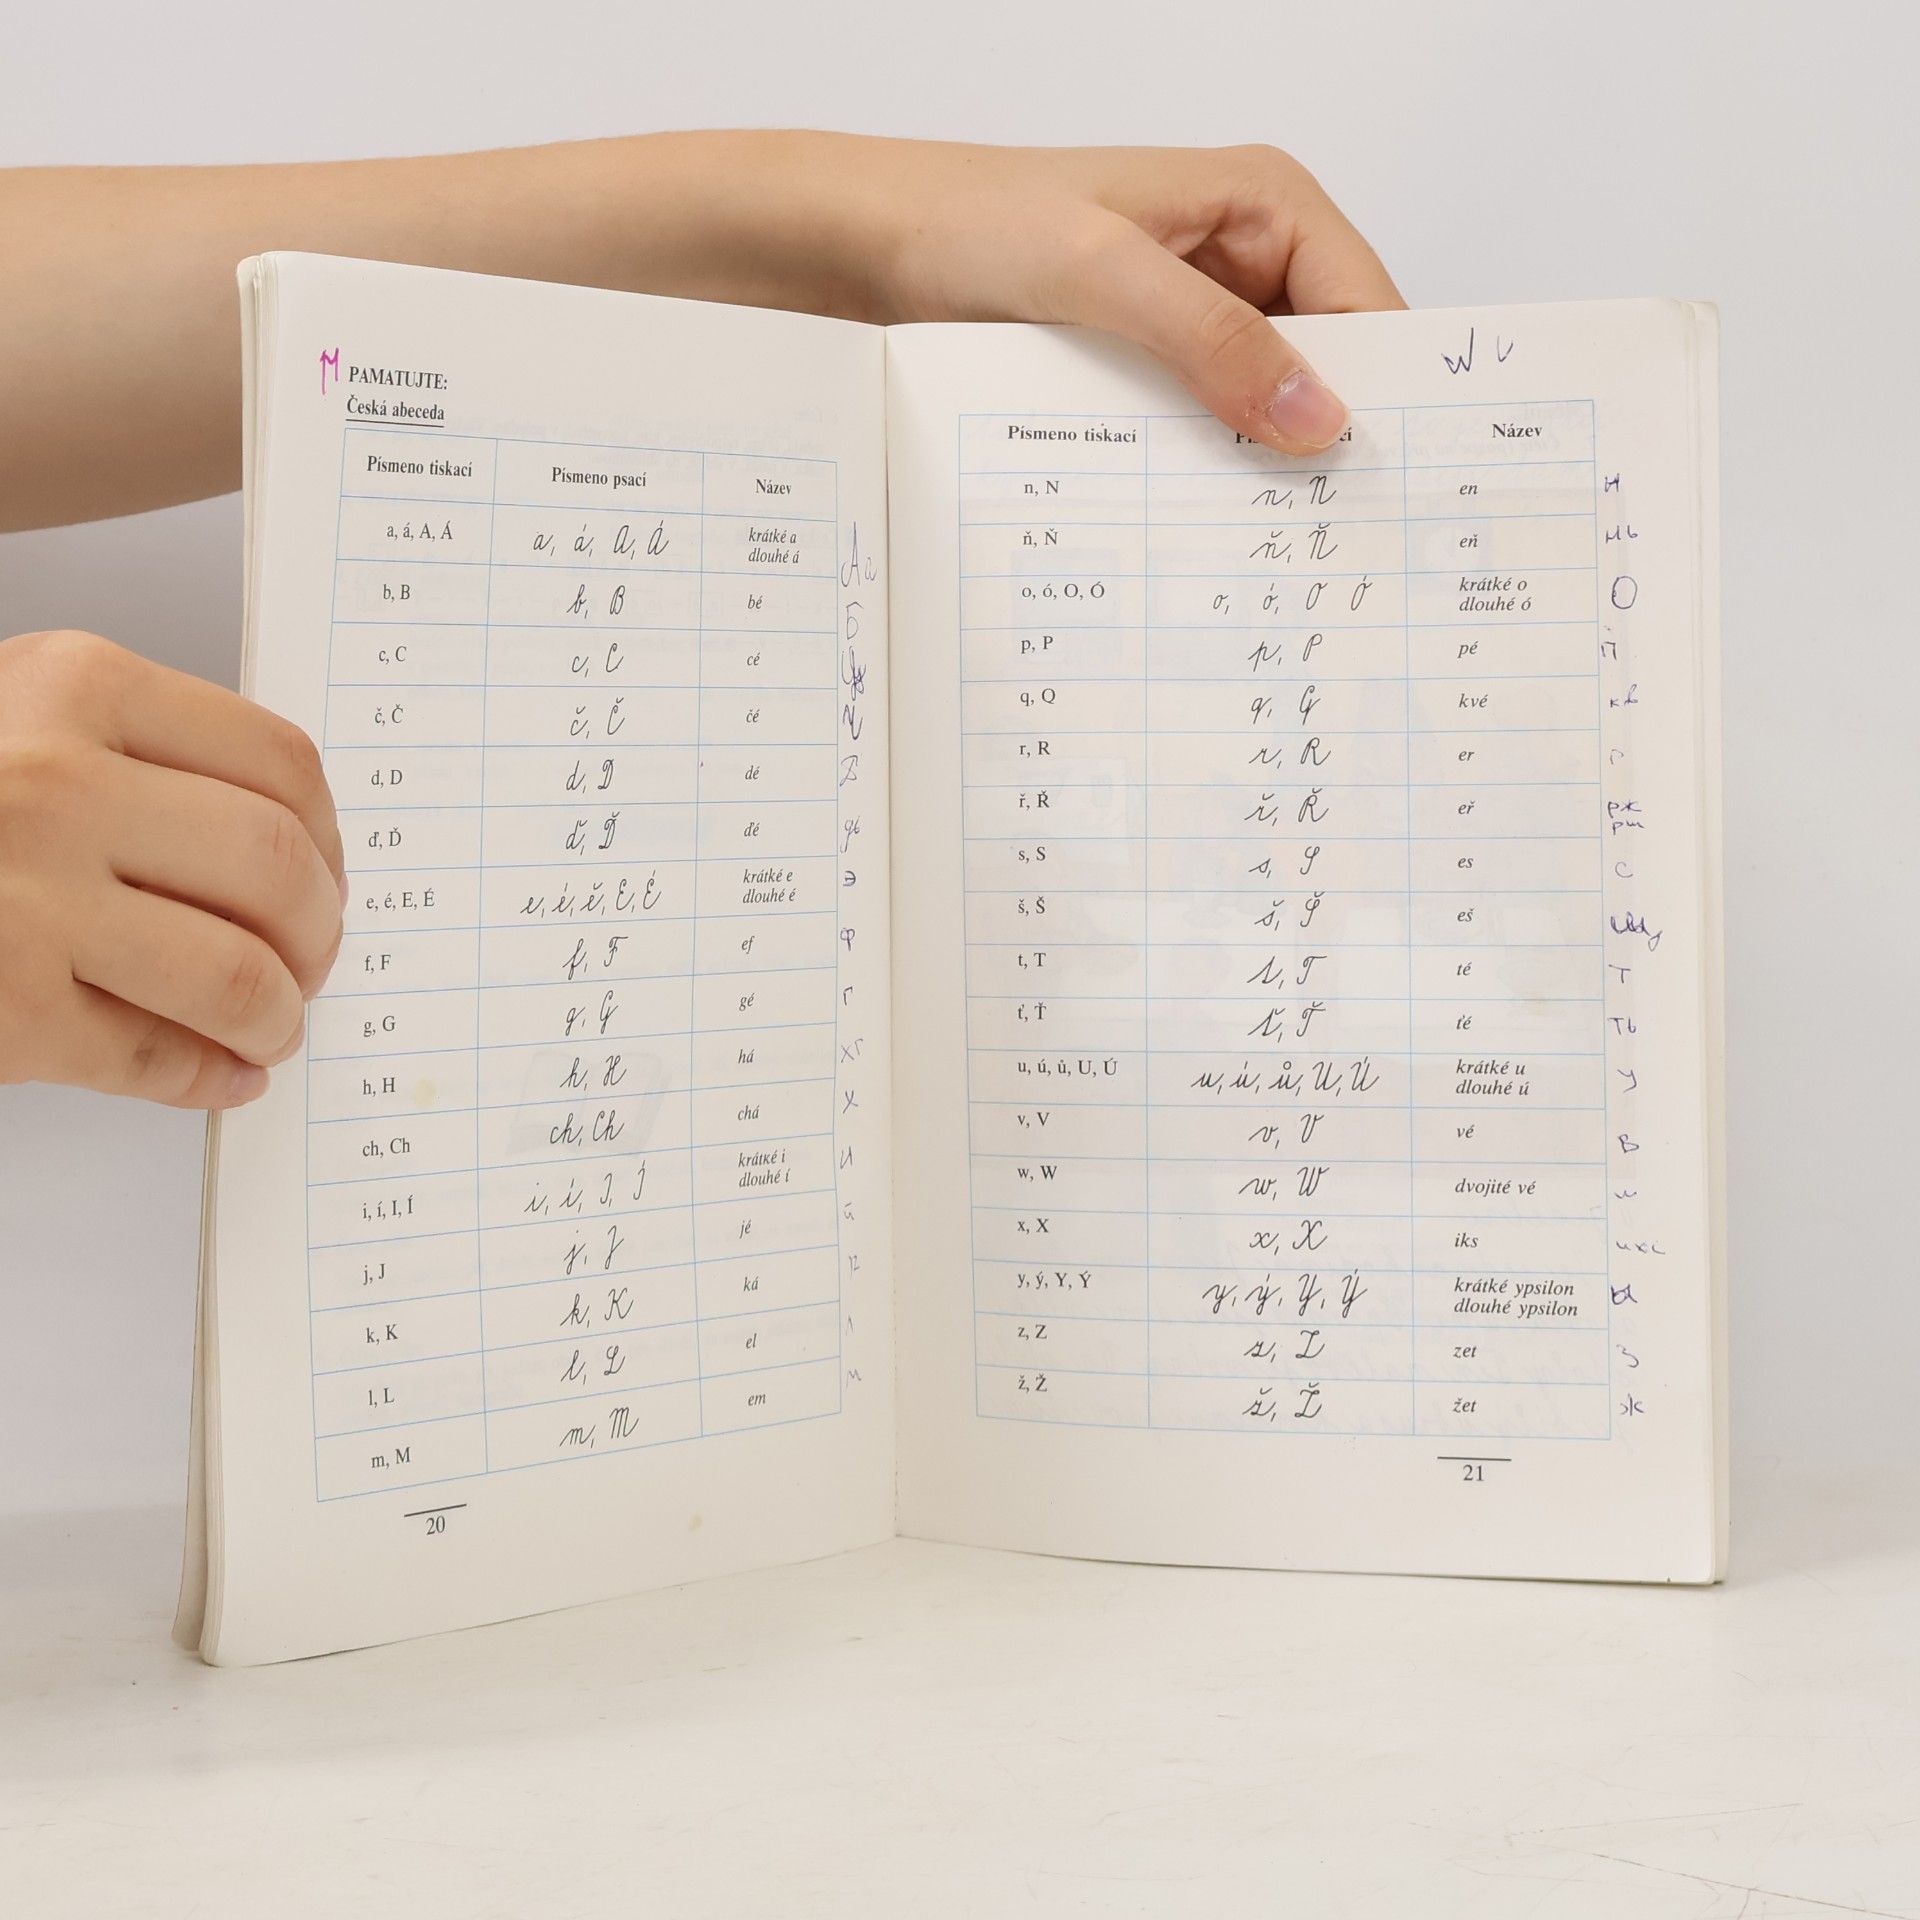 PAMATUJTE:
Česká abeceda
Písmeno tiskací Písmeno psací Název
a, á, A, Á a, á, A, Á krátké a
dlouhé á Аа
b, B b, B bé Б
c, C c, C cé
č, Č č, Č čé Ч
d, D d, D dé
ď, Ď ď, Ď ďé
e, é, E, É e, é, ě, E, É krátké e
dlouhé é э
f, F f, F ef ф
g, G g, G gé г
h, H h, H há хг
ch, Ch ch, Ch chá х
i, í, I, Í i, í, I, Í krátké i
dlouhé í и
j, J j, J jé й
k, K k, K ká к
l, L l, L el л
m, M m, M em м
20
W
Písmeno tiskací Název
n, N n, N en н
ň, Ň ň, Ň eň нь
o, ó, O, Ó o, ó, O Ó krátké o
dlouhé ó О
p, P p, P pé п
q, Q q, Q kvé кв
r, R r, R er
ř, Ř ř, Ř eř рж
рш
s, S s, S es с
š, Š š, Š eš
t, T t, T té т
ť, Ť ť, Ť ťé ть
u, ú, ů, U, Ú u, ú, ů, U, Ú krátké u
dlouhé ú у
v, V v, V vé в
w, W w, W dvojité vé
x, X x, X iks икс
y, ý, Y, Ý y, ý, Y, Ý krátké ypsilon
dlouhé ypsilon
z, Z z, Z zet з
ž, Ž ž, Ž žet ж
21